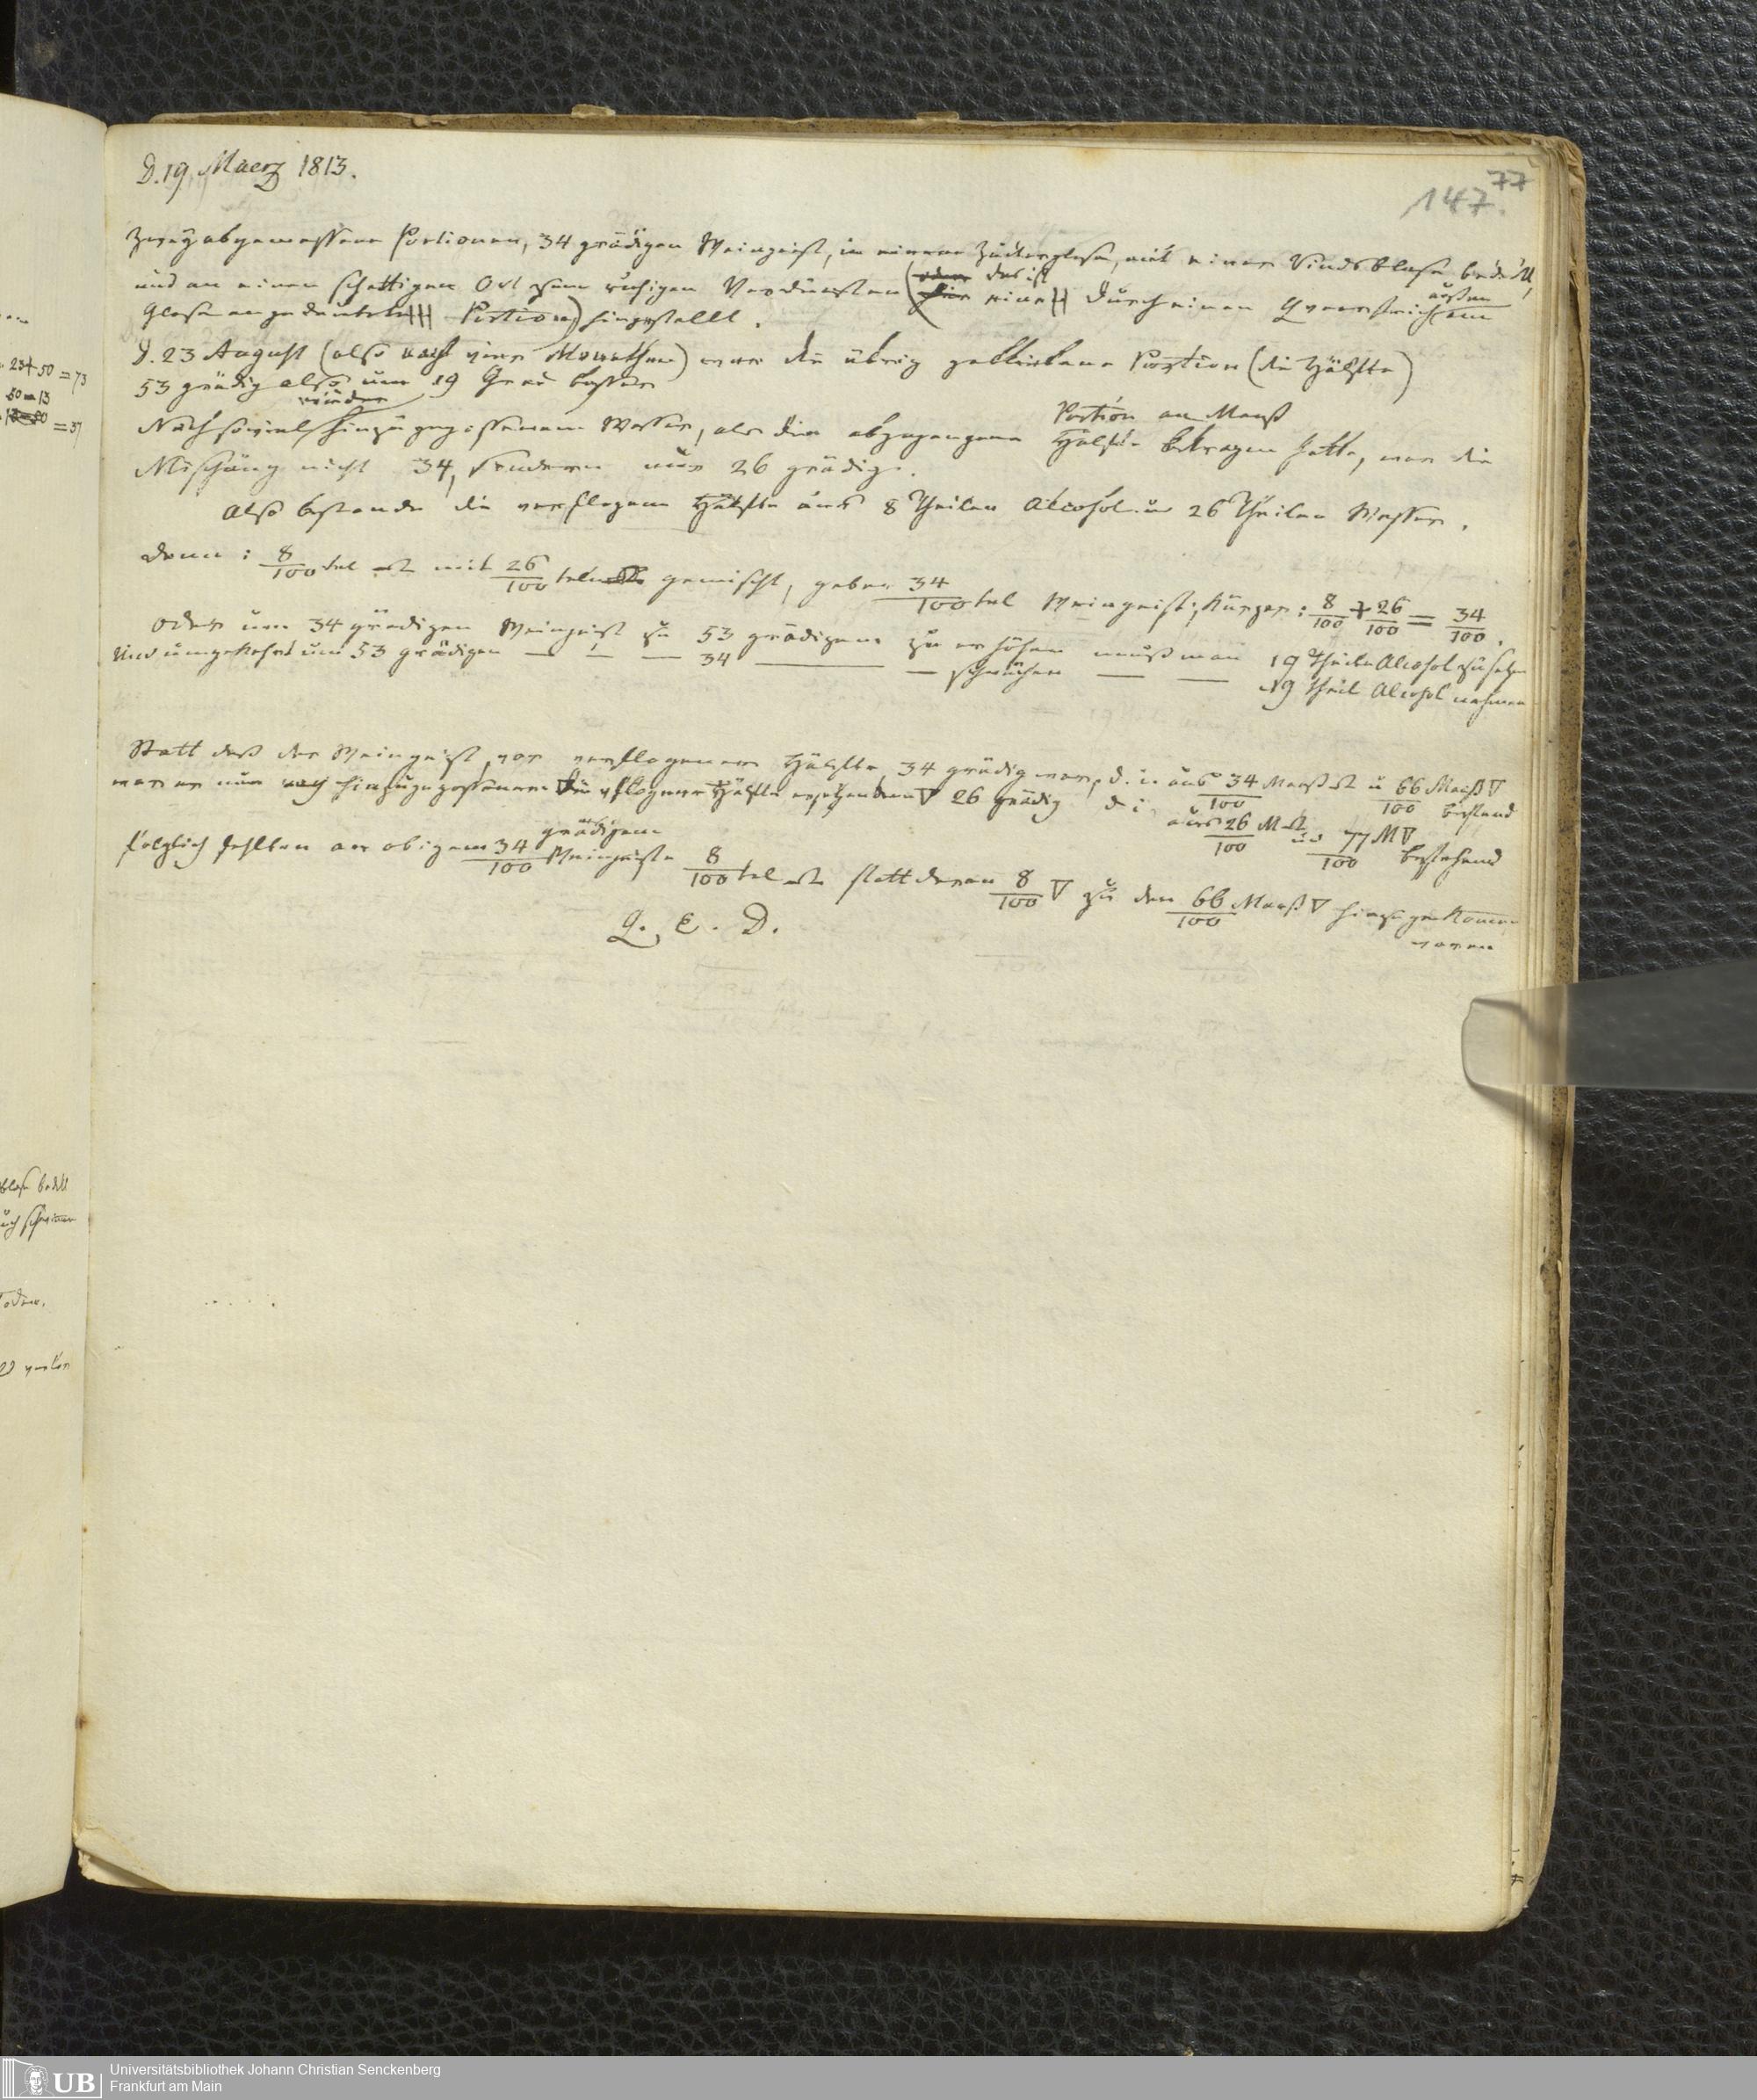 D. 19 Maerz 1813.
77
147.
Zwey abgemessene Portionen, 34 grädigen Weingeist, in einem Zuckerglase, mit einer Rindsblase bedeckt,
und an einen schattigen Ort zum ruhigen Verdünsten (oder das ist eine durch einen Queerstrich am äußern
Glase angedeutete Portion) hingestellt.
D. 23 August (also nach vier Monathen) war die übrig gebliebene Portion (die Hälfte)
53 grädig also um 19 Grad besser
Nach soviel wieder hinzugegossenem Wasser, als die abgegangene Hälfte Portion an Maaß betragen hatte, war die
Mischung nicht 34, sondern nur 26 grädig.
Also bestande die verflogene Hälfte aus 8 Theilen Alcohol u 26 Theilen Wasser.
denn: 8/100 tel mit 26/100 teln gemischt, geben 34/100 tel Weingeist; Kürzer: 8/100 + 26/100 = 34/100.
Oder um 34 grädigen Weingeist zu 53 grädigem zu erhöhen muß man 19 Theile Alcohol zusetzen
Und umgekehrt um 53 grädigen — — — 34 — — schwächen — — 19 Theil Alcohol nehmen
Statt daß der Weingeist, vor verflogener Hälfte, 34 grädig war, d. i. aus 34/100 Maaß u 66/100 Maaß ▽ bestand
war er nun nach hinzugegossenem die verflogene Hälfte ersetzendem ▽ 26 grädig d i aus 26/100 M und 77/100 M ▽ bestehend
folglich fehlten an obigem 34/100 grädigem Weingeiste 8/100 tel statt deren 8/100 ▽ zu den 66/100 Maaß ▽ hinzugekomen
waren
Q. E. D.
23+50 = 73
50 - 13
= 37
blase bedeckt
UB
Universitätsbibliothek Johann Christian Senckenberg
Frankfurt am Main